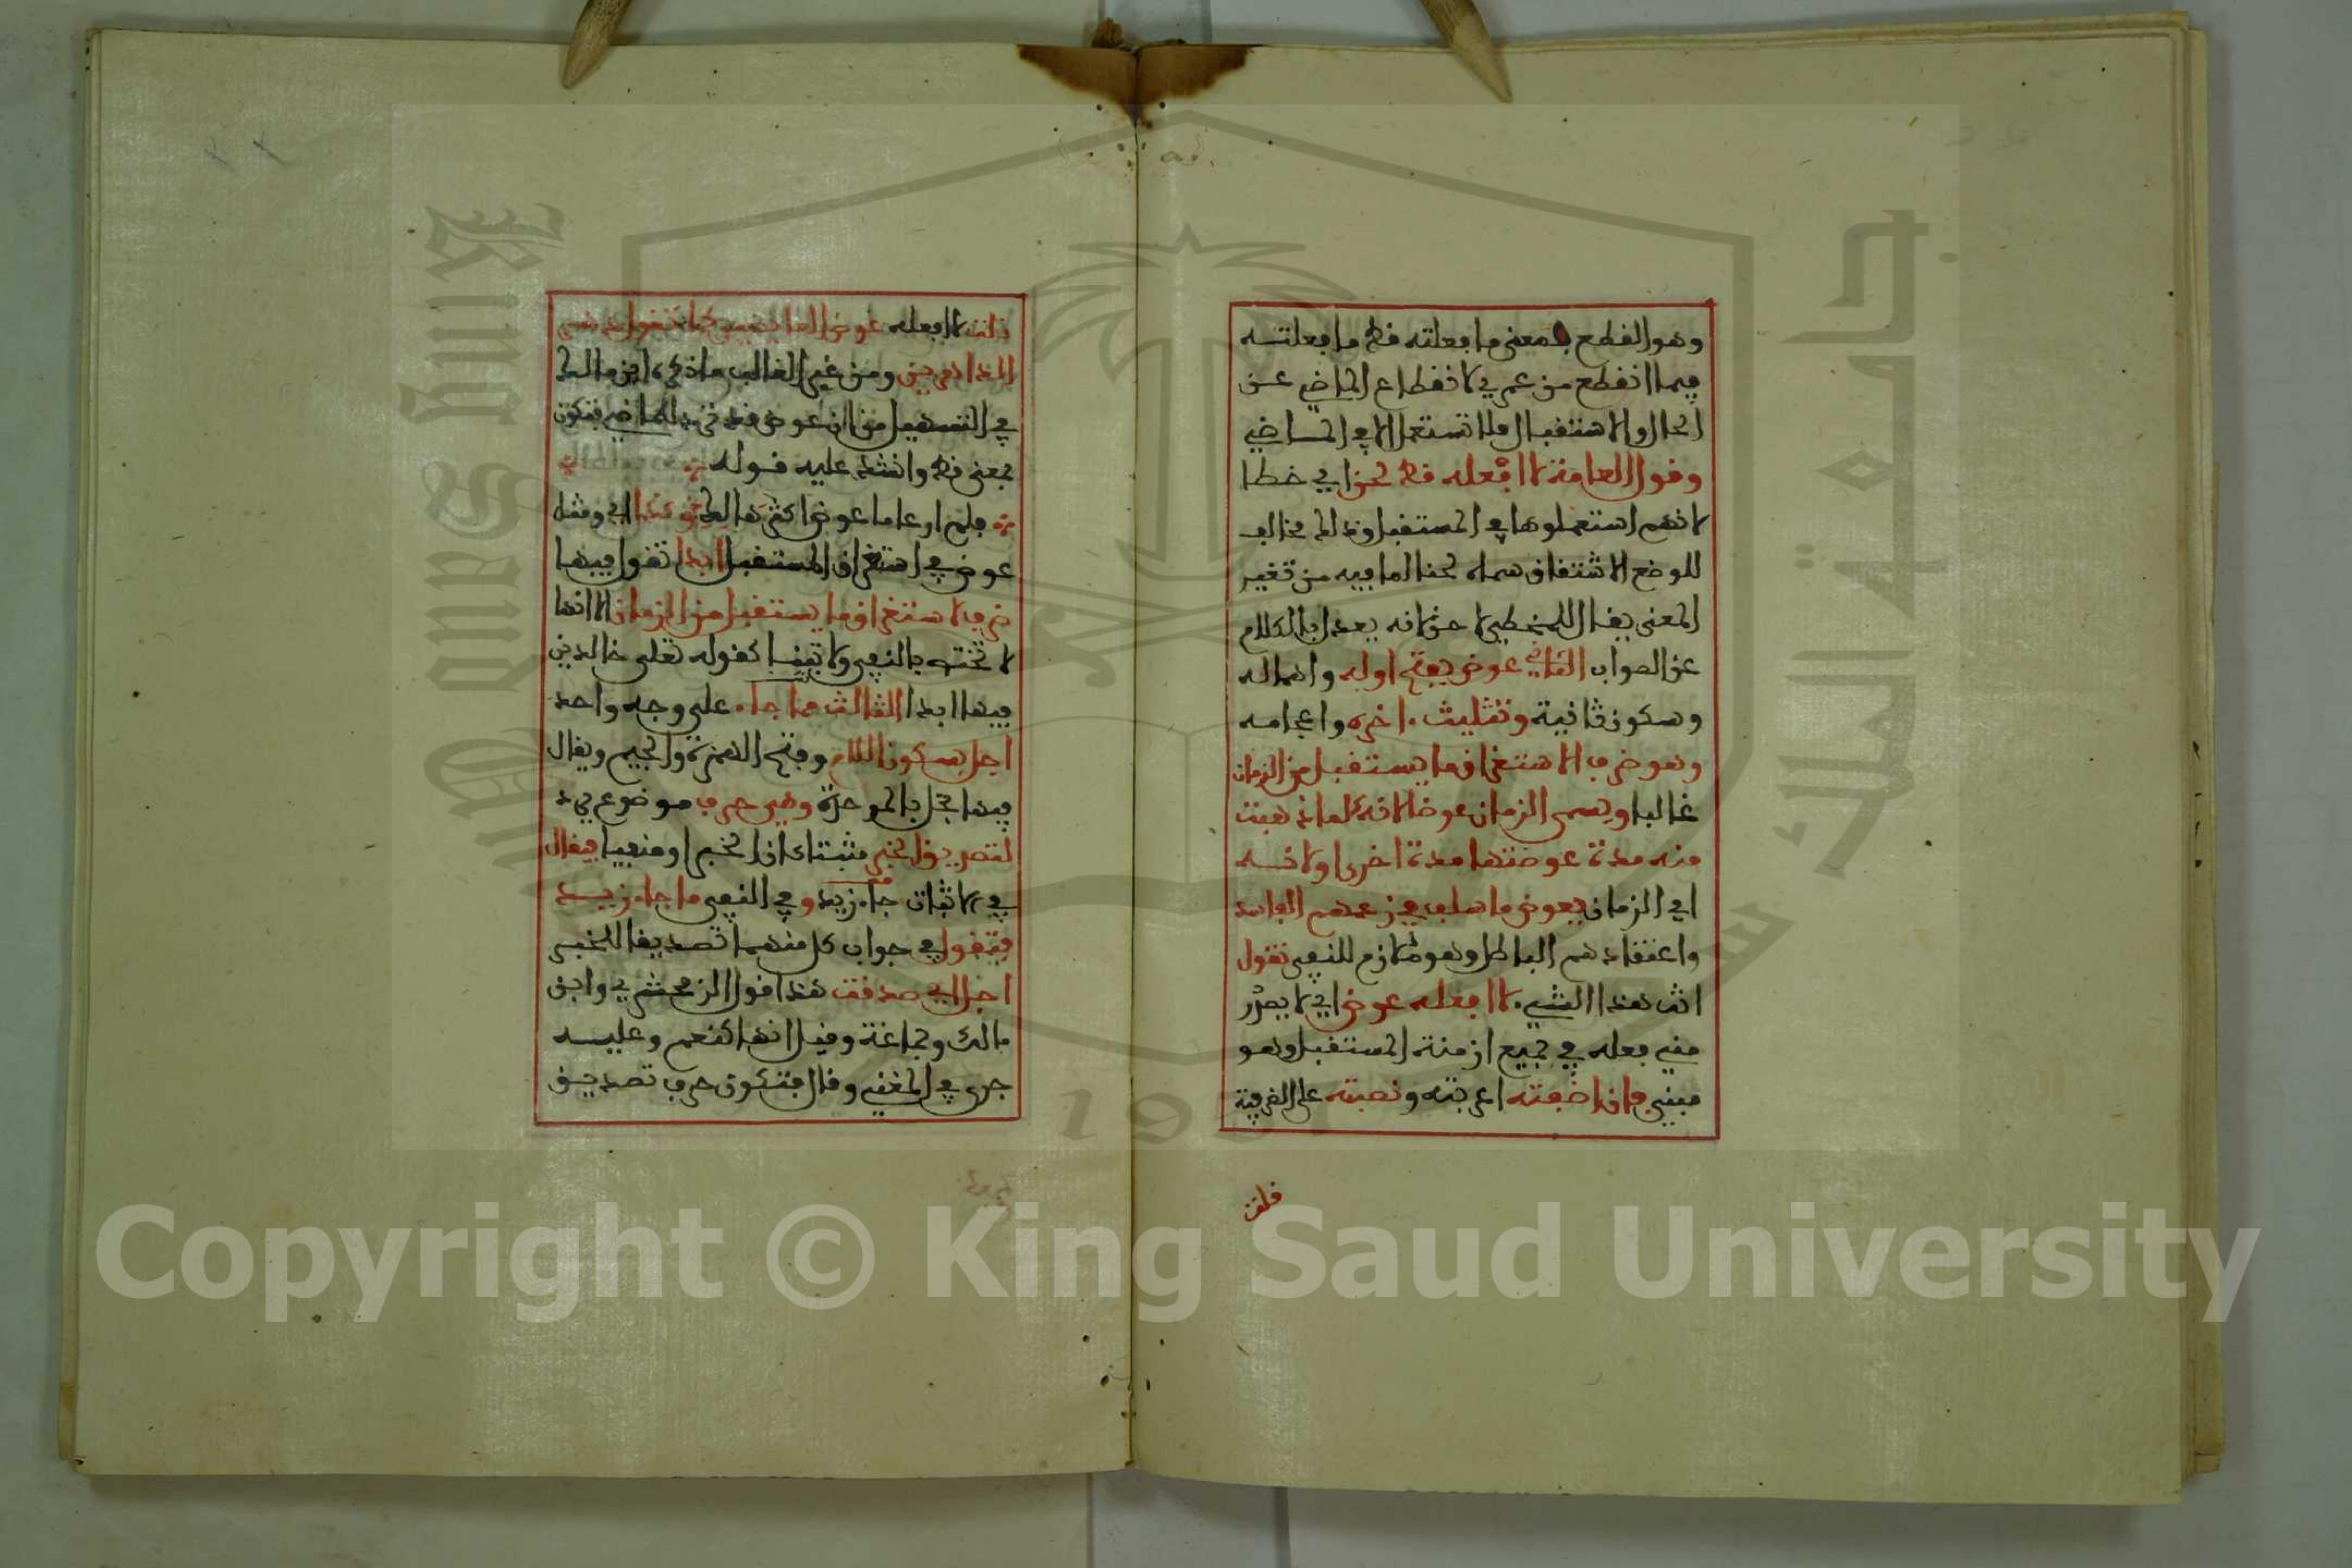 وهو القطع بمعنى ما فعلته قط ما فعلته
فيما انقطع من عمري لانقطاع الماضي عن
الحال والاستقبال فلا تستعمل الا في الماضي
وقول العامة لا افعله قط لحن اي خطا
لانهم استعملوها في المستقبل وذلك مخالف
للوضع الاشتقاق سماه لحنا لما فيه من تغير
المعنى يقال للمخطي لاحن لانه يعدل بالكلام
عن الصواب الثاني عوض بفتح اوله واهماله
وسكون ثانية وتثليث اخره واعجامه
وهو ظرف لاستغراق ما يستقبل من الزمان
غالبا ويسمى الزمان عوضا لانه كلما ذهبت
منه مدة عوضتها مدة اخرى او لانه
اي الزمان يعوض ما سلب في زعمهم الفاسد
واعتقادهم الباطل وهو ملازم للنفي تقول
انت هذا الشيء لا افعله عوض اي لا يصدر
مني فعله في جميع ازمنة المستقبل وهو
مبني فان اضفته اعربته ونصبته على الظرفية
قلت
قلت لا افعله عوض العايضين كما تقول دهر
الداهرين ومن غير الغالب ما ذكره ابن مالك
في التسهيل من ان عوض قد ترد للماضي فتكون
بمعنى قط وانشد عليه قوله
فلم ار عاما عوض اكثر هالكا وكذا اي ومثل
عوض في استغراق المستقبل ابدا تقول فيها
ظرف لاستغراق ما يستقبل من الزمان الا انها
لا تختص بالنفي ولا تبنى كقوله تعلى خالدين
فيها ابدا الثالث مما جاء على وجه واحد
اجل بسكون اللام وفتح الهمزة والجيم ويقال
فيها بجل بالموحدة وهي حرف موضوع
لتصديق الخبر مثبتا كان الخبر او منفيا فيقال
في الاثبات جاء زيد وفي النفي ما جاء زيد
فتقول في جواب كل منهما تصديقا للمخبر
اجل اي صدقت هذا قول الزمخشري وابن
مالك وجماعة وقيل انها كنعم وعليه
جرى في المغني وقال فتكون حرف تصديق
Copyright © King Saud University
1957